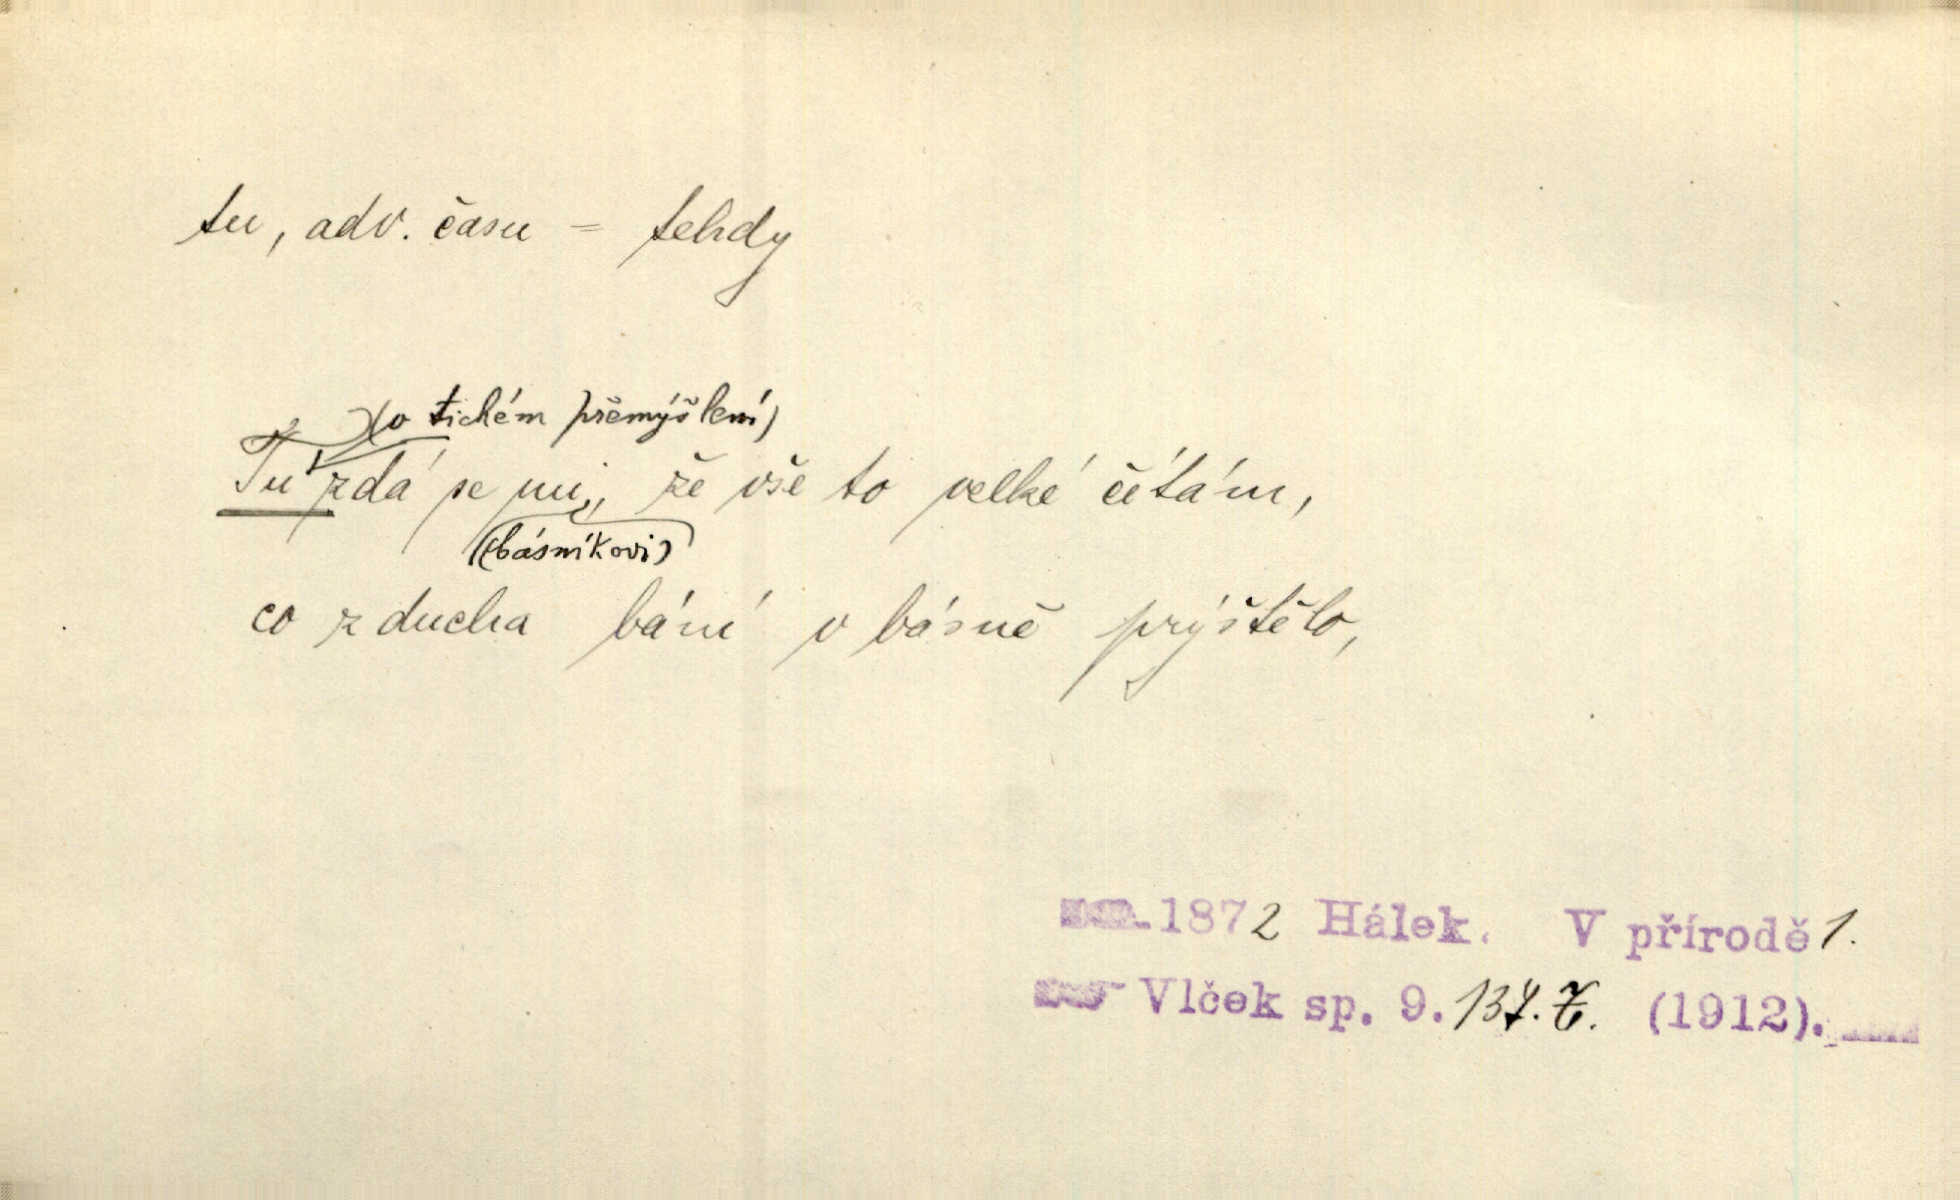 tu, adv. času = tehdy
(o tichém přemýšlení)
Tu zdá se mi, že vše to velké čítám,
(básníkovi)
co z ducha bání v básně prýštělo,
1872 Hálek. V přírodě 1.
Vlček sp. 9. 137. (1912).